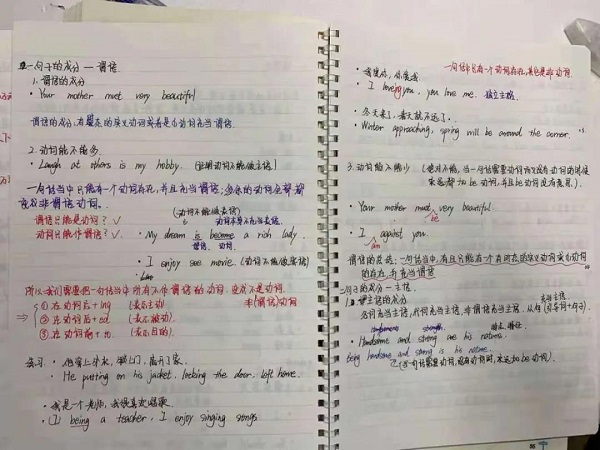 一. 句子的成分 — 谓语.
1. 谓语的成分
· Your mother must very beautiful.
谓语的成分, 有
2. 动词能不能多.
· Laugh at others is my hobby. (证明动词不能做主语)
一句话当中只能有一个动词存在, 并且充当谓语; 多余的动词全部都
变成非谓语动词.
(动词不能做表语)
谓语只能是动词? ✓
动词只能作谓语? ✓
· My dream is become a rich lady.
谓语. 动词.
· I enjoy see movie. (动词不能做宾语)
所以, 我们需要把一句话当中所有不作谓语的动词, 变成不是动词.
非(谓语)动词
⇒ ① 在动词后 + ing (表主动)
② 在动词后 + ed (表示被动).
③ 在动词前 + to. (表示目的).
练习. · 他穿上外衣, 锁上门, 离开了家.
· He putting on his jacket, locking the door, left home.
· 我是一个老师, 我很喜欢唱歌.
· (I) being a teacher, I enjoy singing songs.
一句话中只有一个动词存在, 其它是非动词.
· 我爱你, 你爱我
· I loving you, you love me. 独立主格.
· 冬天来了, 春天就不远了.
· Winter approaching, spring will be around the corner.
3. 动词能不能少 (绝对不能, 当一句话需要动词而又没有动词的时候
永远加 to be 动词, 并且 be 动词没有意思).
· Your mother must very beautiful.
be
· I against you.
am
谓语的总结: 一句话当中, 有且只能有一个
的存在, 充当谓语
句子的成分 — 主语.
1. 主语的成分
名词充当主语, 代词充当主语, 非谓语充当主语, 从句
handsomeness strength.
· Handsome and strong are his nature.
being handsome and strong is his nature.
(当一句话需要动词, 没有动词时, 永远 to be 动词).